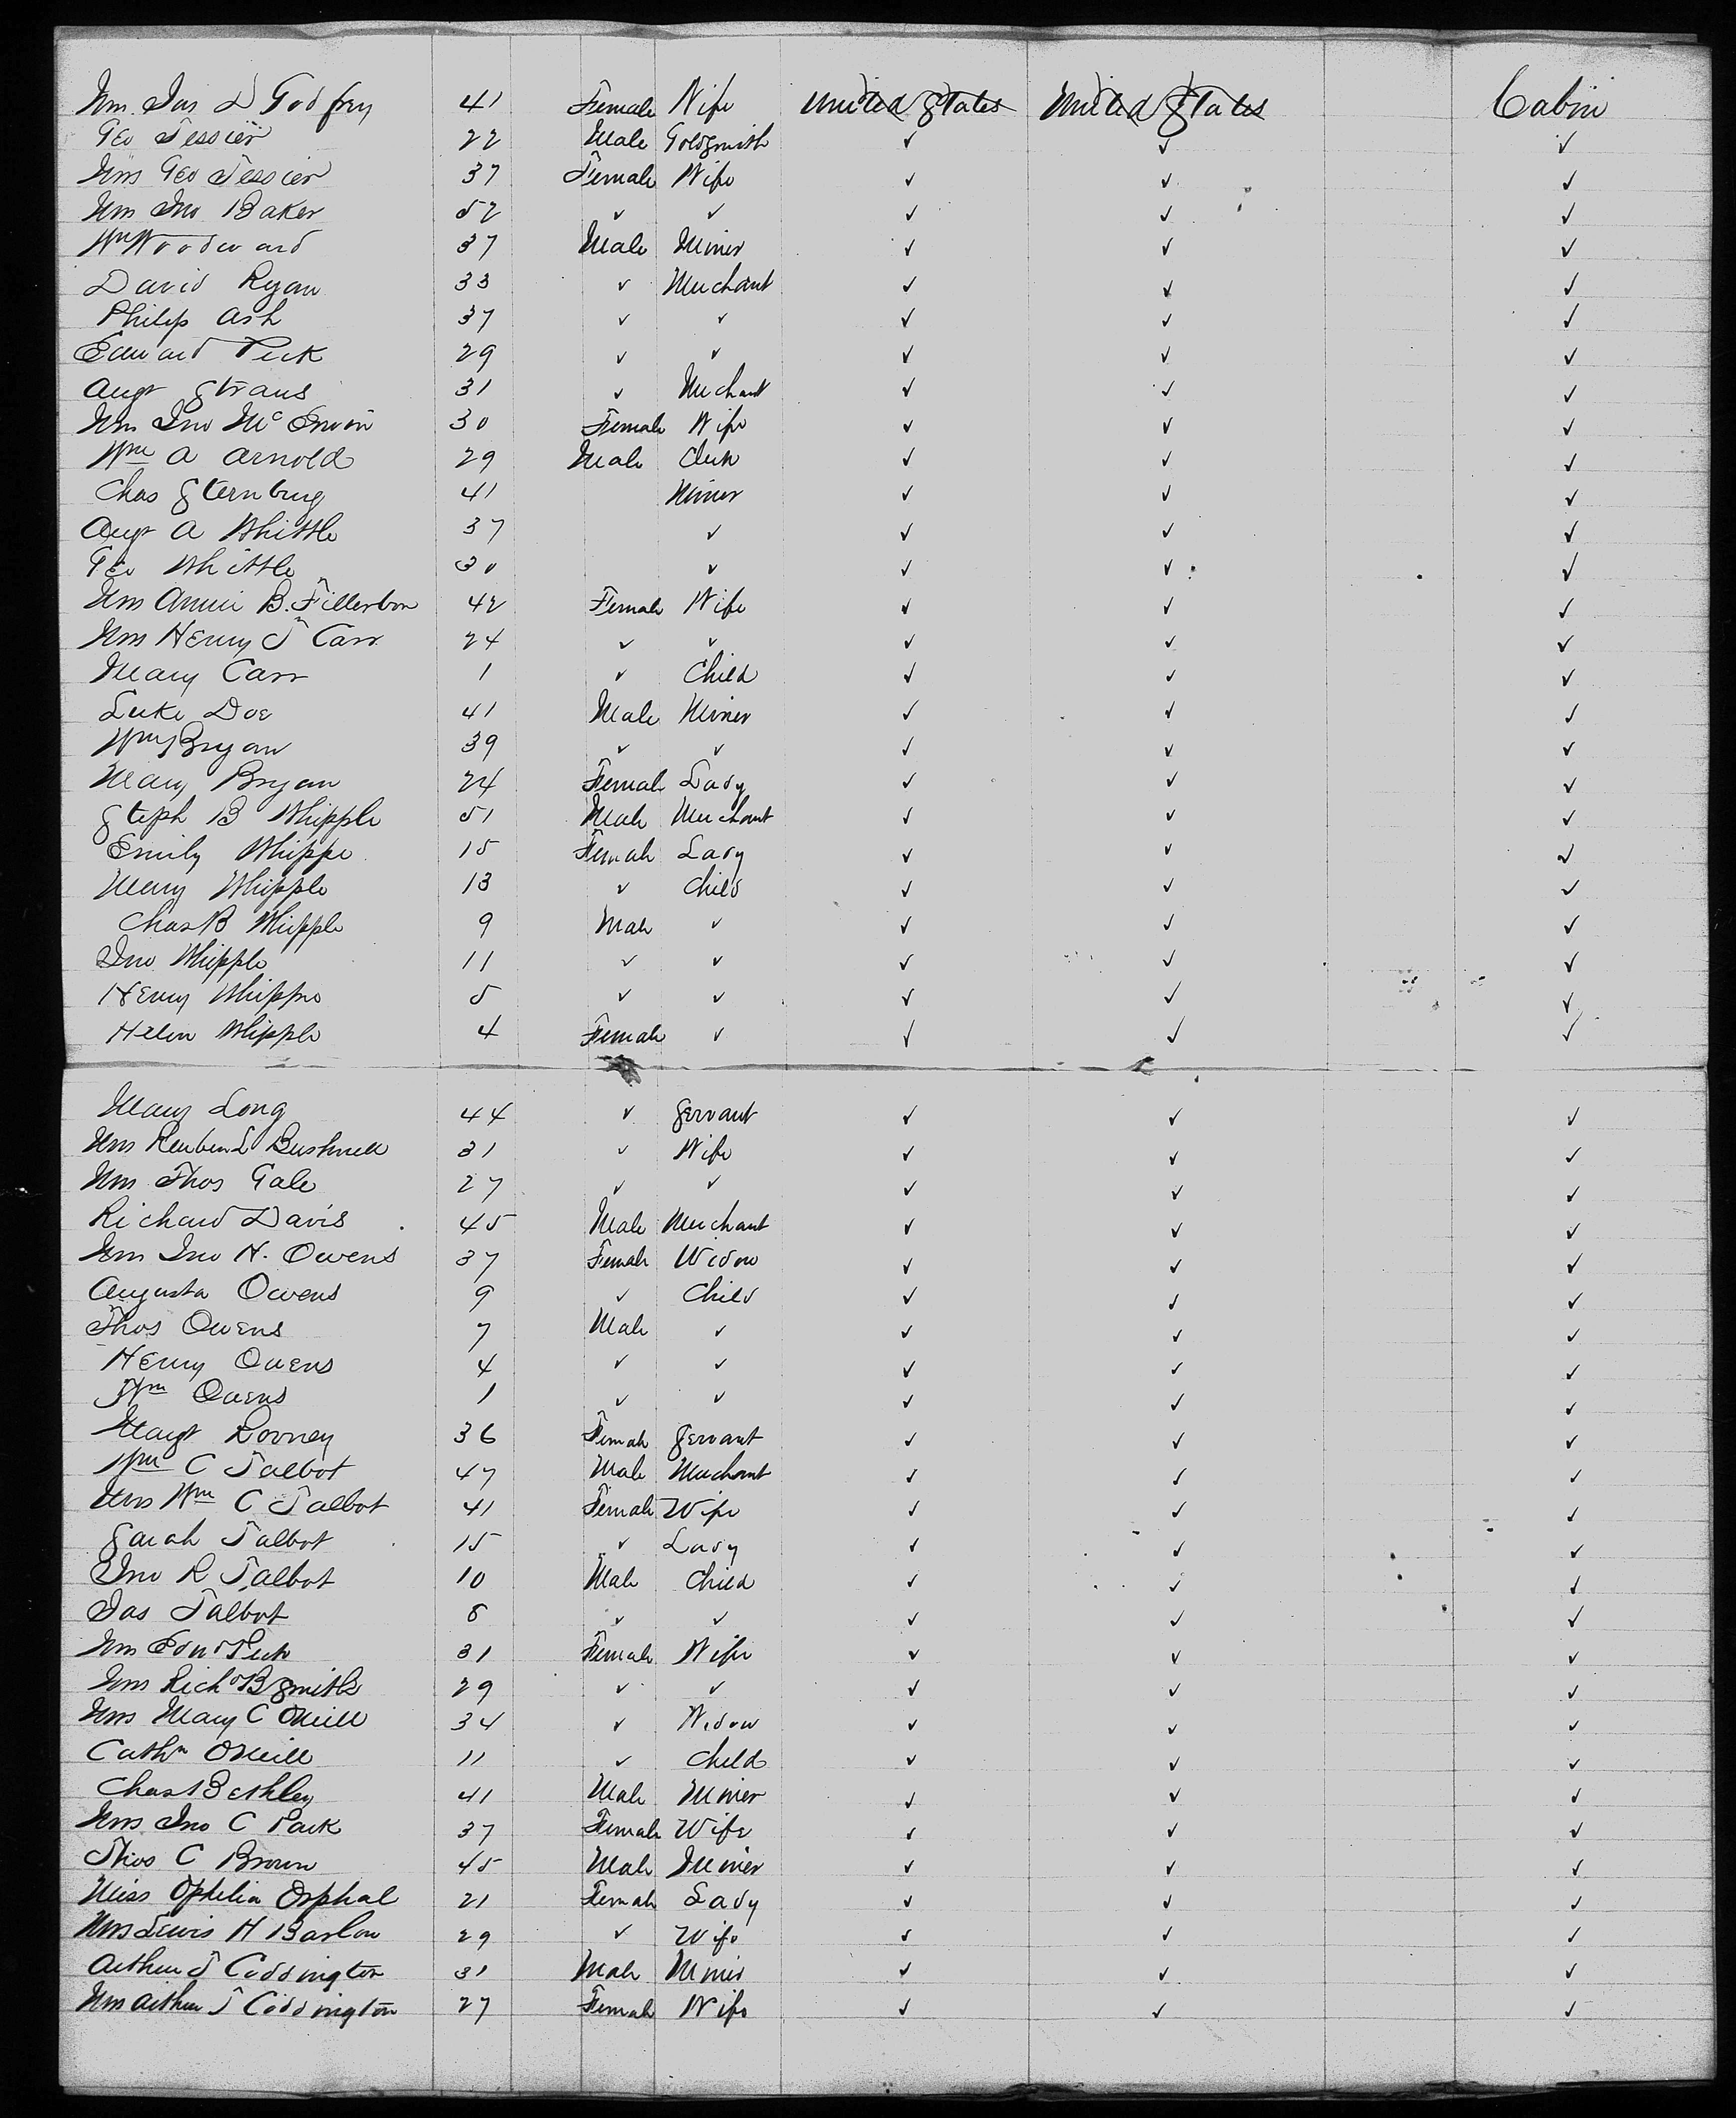 Mrs Jas D Godfrey 41 Female Wife United States United States Cabin
Geo Tessier 22 Male Goldsmith ✓ ✓ ✓
Mrs Geo Tessier 37 Female Wife ✓ ✓ ✓
Mrs Jno Baker 52 ✓ ✓ ✓ ✓ ✓
Wm Woodward 37 Male Miner ✓ ✓ ✓
David Ryan 33 ✓ Merchant ✓ ✓ ✓
Philip Ash 37 ✓ ✓ ✓ ✓ ✓
Edward Peck 29 ✓ ✓ ✓ ✓ ✓
Augt Straus 31 ✓ Merchant ✓ ✓ ✓
Mrs Jno Mc 30 Female Wife ✓ ✓ ✓
Wm A Arnold 29 Male Clerk ✓ ✓ ✓
Chas Sternburg 41 Miner ✓ ✓ ✓
Augt A Whittle 37 ✓ ✓ ✓ ✓
Geo Whittle 30 ✓ ✓ ✓ ✓
Mrs Annie B. Fillerbrn 42 Female Wife ✓ ✓ ✓
Mrs Henry T Carr 24 ✓ ✓ ✓ ✓ ✓
Mary Carr 1 ✓ Child ✓ ✓ ✓
Luke Doe 41 Male Miner ✓ ✓ ✓
Wm Bryan 39 ✓ ✓ ✓ ✓ ✓
Mary Bryan 24 Female Lady ✓ ✓ ✓
Steph B Whipple 51 Male Merchant ✓ ✓ ✓
Emily Whippe 15 Female Lady ✓ ✓ ✓
Mary Whipple 13 ✓ Child ✓ ✓ ✓
Chas B Whipple 9 Male ✓ ✓ ✓ ✓
Jno Whipple 11 ✓ ✓ ✓ ✓ ✓
Henry Whipple 5 ✓ ✓ ✓ ✓ ✓
Helen Whipple 4 Female ✓ ✓ ✓ ✓
Mary Long 44 ✓ Servant ✓ ✓ ✓
Mrs Reuben L Bushnell 31 ✓ Wife ✓ ✓ ✓
Mrs Thos Gale 27 ✓ ✓ ✓ ✓ ✓
Richard Davis 45 Male Merchant ✓ ✓ ✓
Mrs Jno H. Owens 37 Female Widow ✓ ✓ ✓
Augusta Owens 9 ✓ Child ✓ ✓ ✓
Thos Owens 7 Male ✓ ✓ ✓ ✓
Henry Owens 4 ✓ ✓ ✓ ✓ ✓
Wm Owens 1 ✓ ✓ ✓ ✓ ✓
Margt Rooney 36 Female Servant ✓ ✓ ✓
Wm C Talbot 47 Male Merchant ✓ ✓ ✓
Mrs Wm C Talbot 41 Female Wife ✓ ✓ ✓
Sarah Talbot 15 ✓ Lady ✓ ✓ ✓
Jno R Talbot 10 Male Child ✓ ✓ ✓
Jas Talbot 8 ✓ ✓ ✓ ✓ ✓
Mrs Edwd Peck 31 Female Wife ✓ ✓ ✓
Mrs Richd B Smith 29 ✓ ✓ ✓ ✓ ✓
Mrs Mary C ONeill 34 ✓ Widow ✓ ✓ ✓
Cathn ONeill 11 ✓ Child ✓ ✓ ✓
Chas Bethley 41 Male Miner ✓ ✓ ✓
Mrs Jno C Pack 37 Female Wife ✓ ✓ ✓
Thos C Brown 45 Male Miner ✓ ✓ ✓
Miss Ophelia Orphal 21 Female Lady ✓ ✓ ✓
Mrs Lewis H Barlow 29 ✓ Wife ✓ ✓ ✓
Arthur T Coddington 31 Male Miner ✓ ✓ ✓
Mrs Arthur T Coddington 27 Female Wife ✓ ✓ ✓